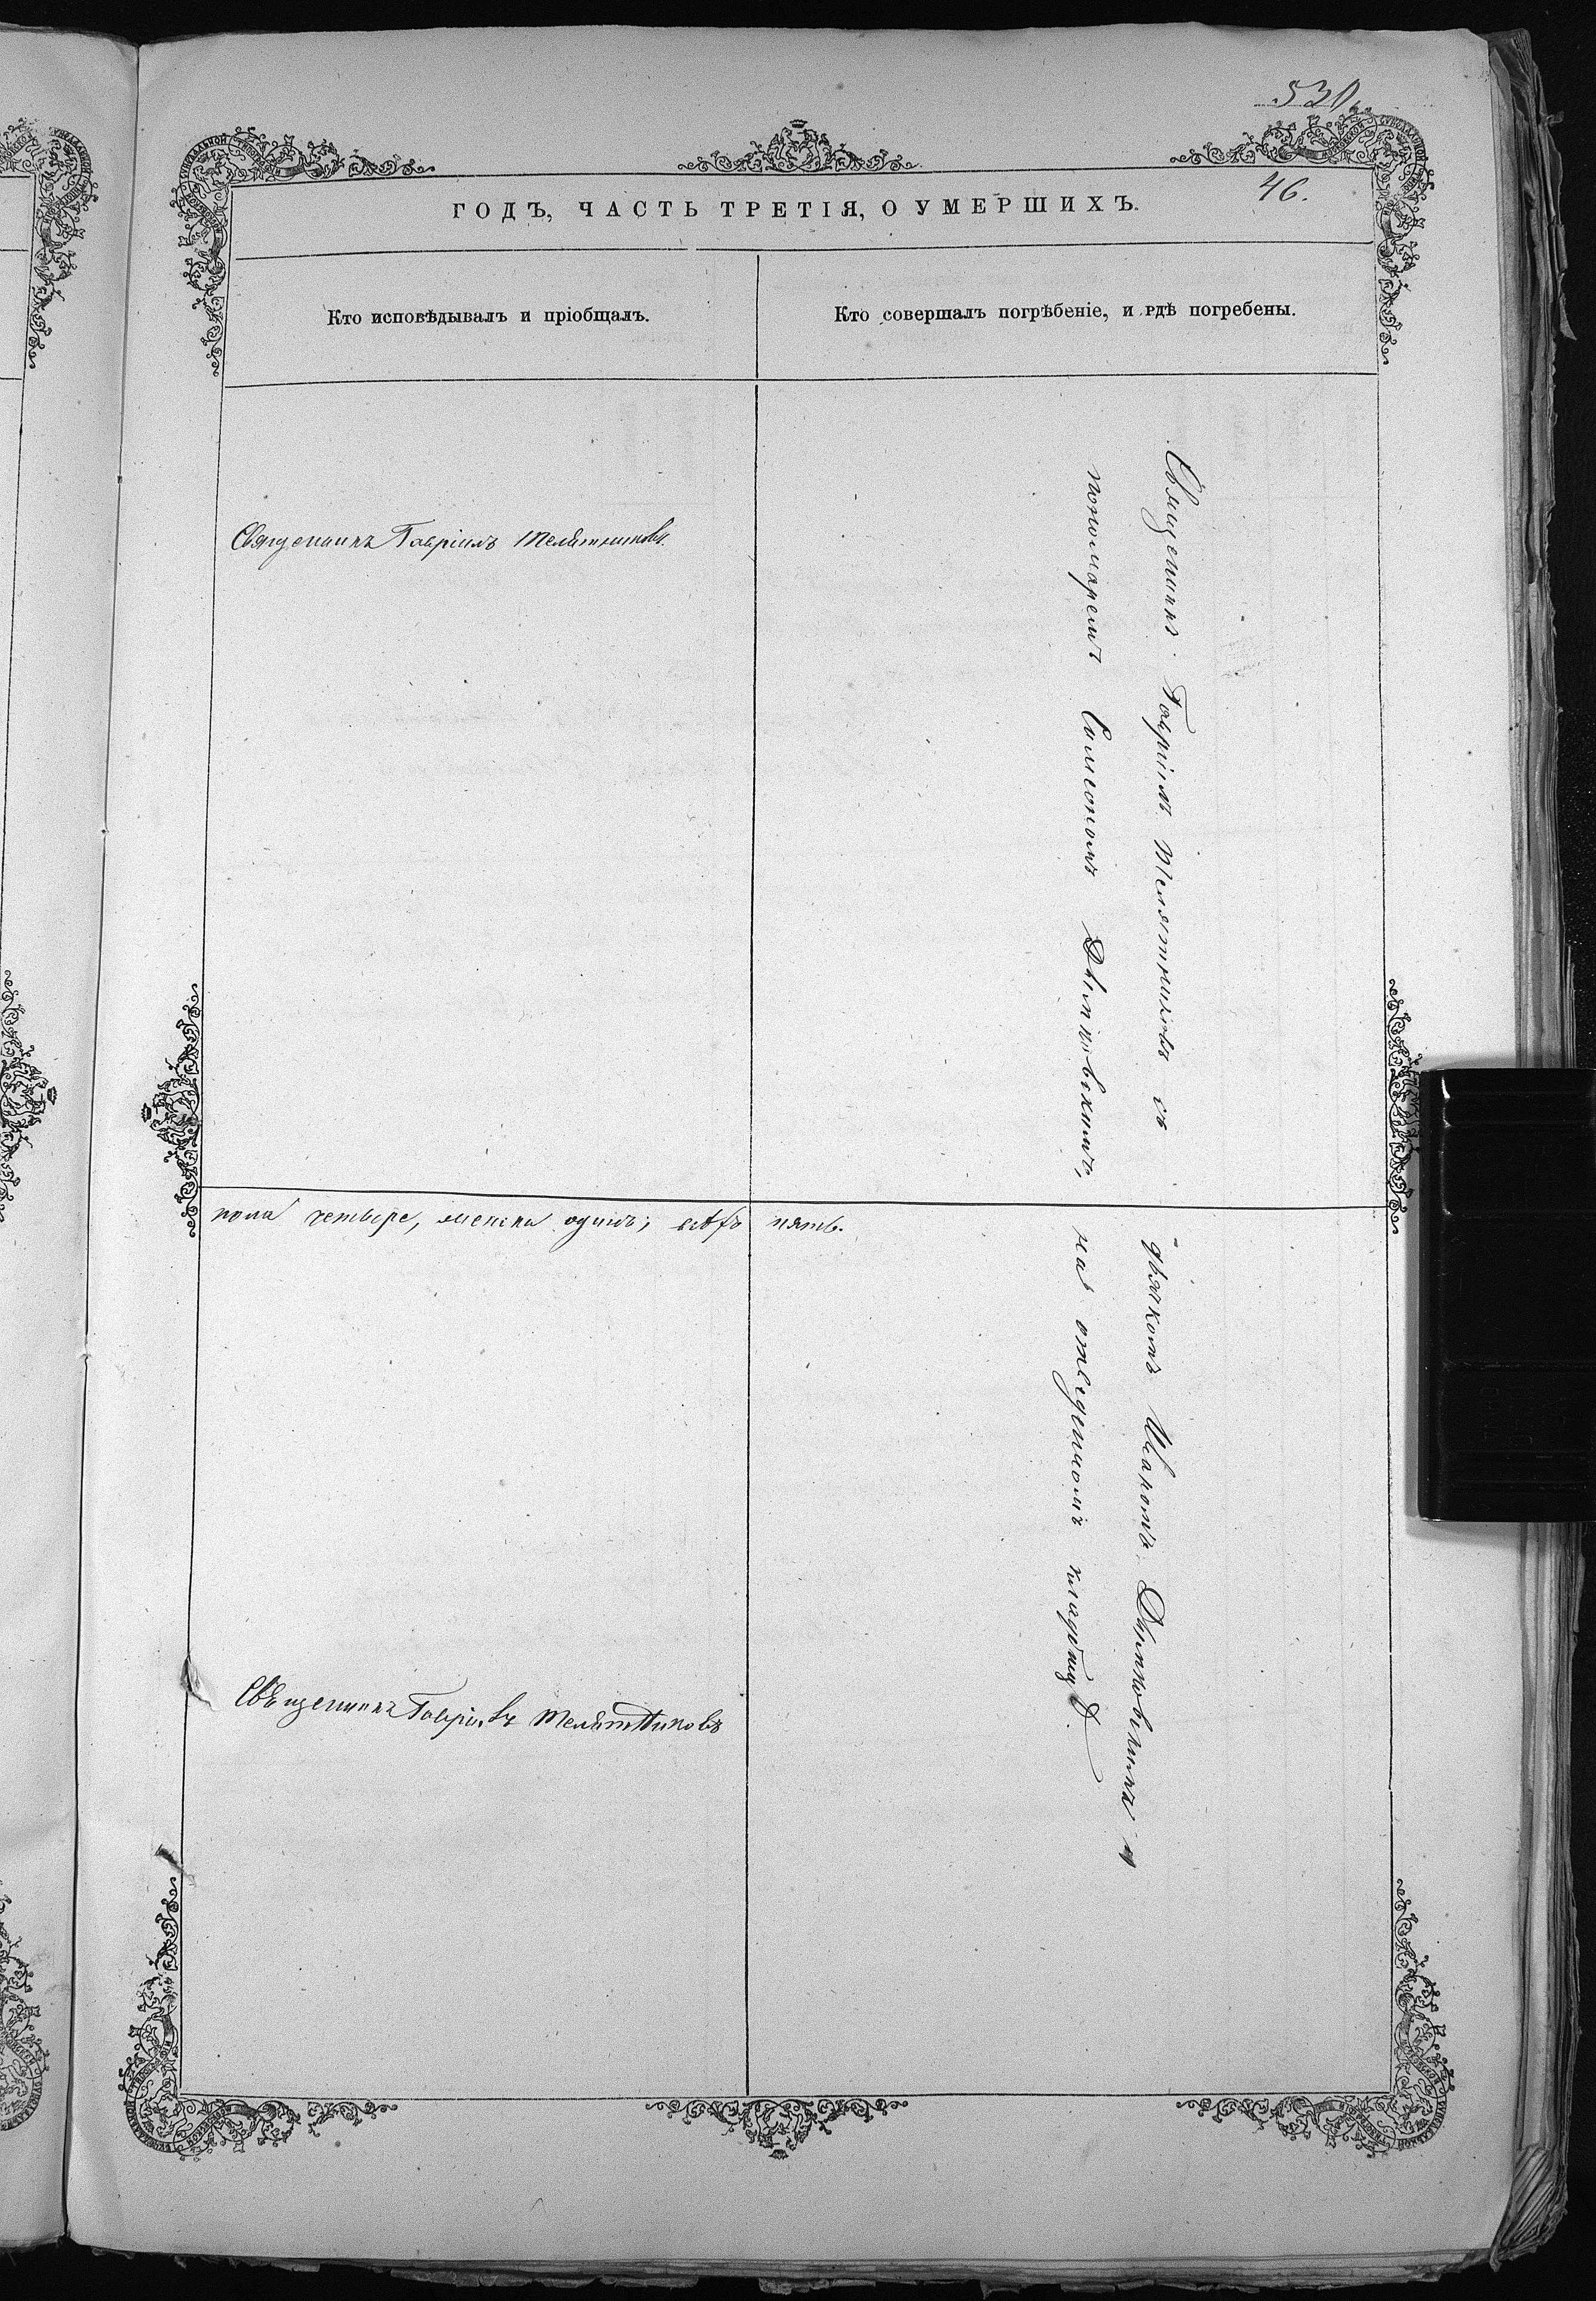 530
46.
ГОДЪ, ЧАСТЬ ТРЕТІЯ, О УМЕРШИХЪ.
Кто исповѣдывалъ и пріобщалъ.
Кто совершалъ погрѣбеніе, и гдѣ погребены.
Священникъ Гавріилъ Телятниковъ.
Священникъ Гавріилъ Телятниковъ съ
пономаремъ Симеономъ
пола четыре, женска одинъ, всѣхъ пять.
дьячкомъ и
на отведенномъ кладбищѣ
Священникъ Гавріилъ Телятниковъ